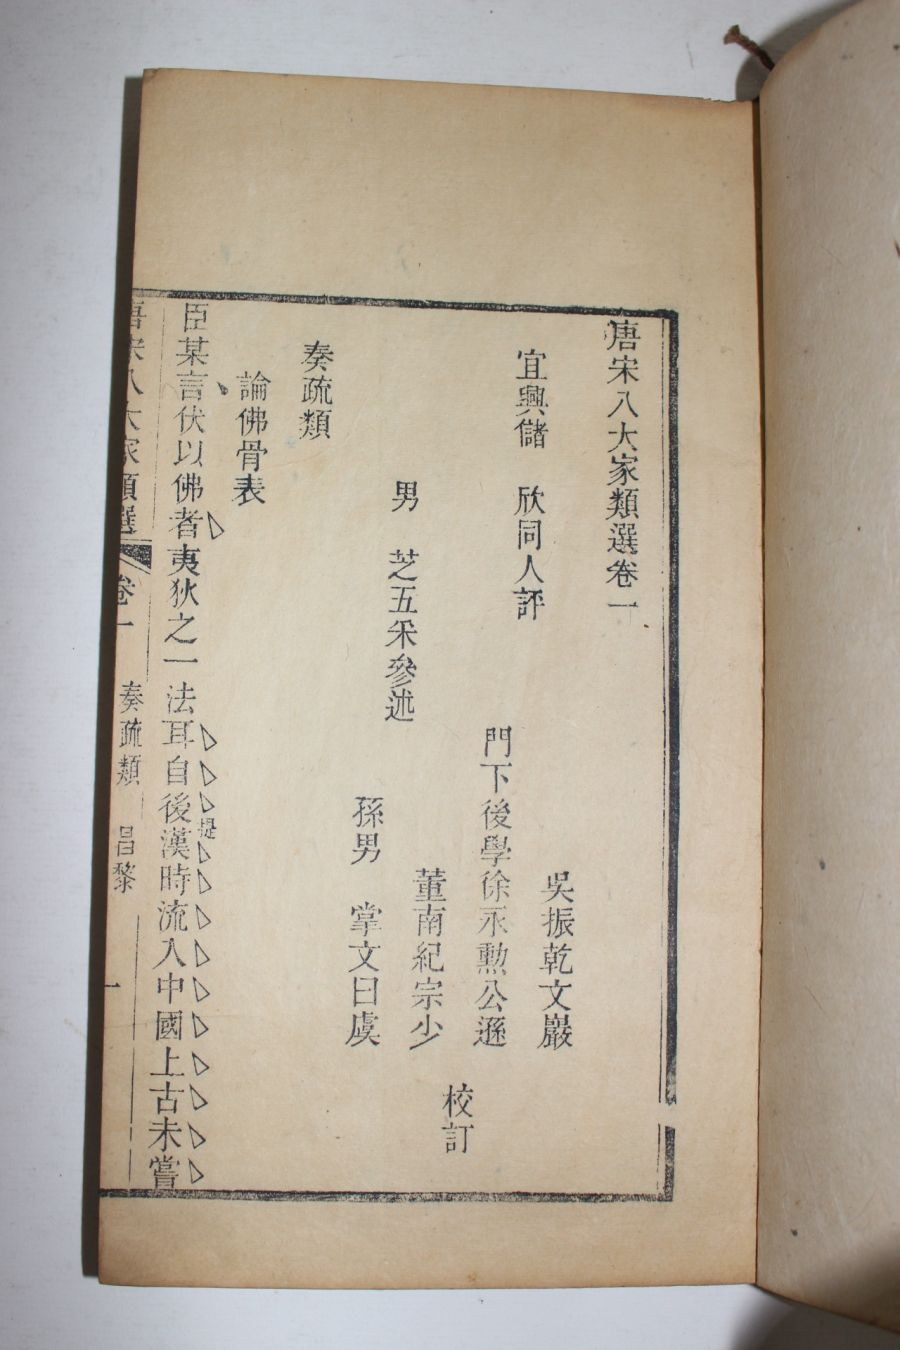 唐宋八大家類選卷一
宜興儲 欣同人評
男 芝五采參述
吳振乾文巖
門下後學徐永勲公遜
董南紀宗少
孫男 掌文曰虞
校訂
奏疏類
論佛骨表
臣某言伏以佛者夷狄之一法耳自後漢時流入中國上古未嘗
提
唐宋八大家類選 卷一 奏疏類 昌黎 一